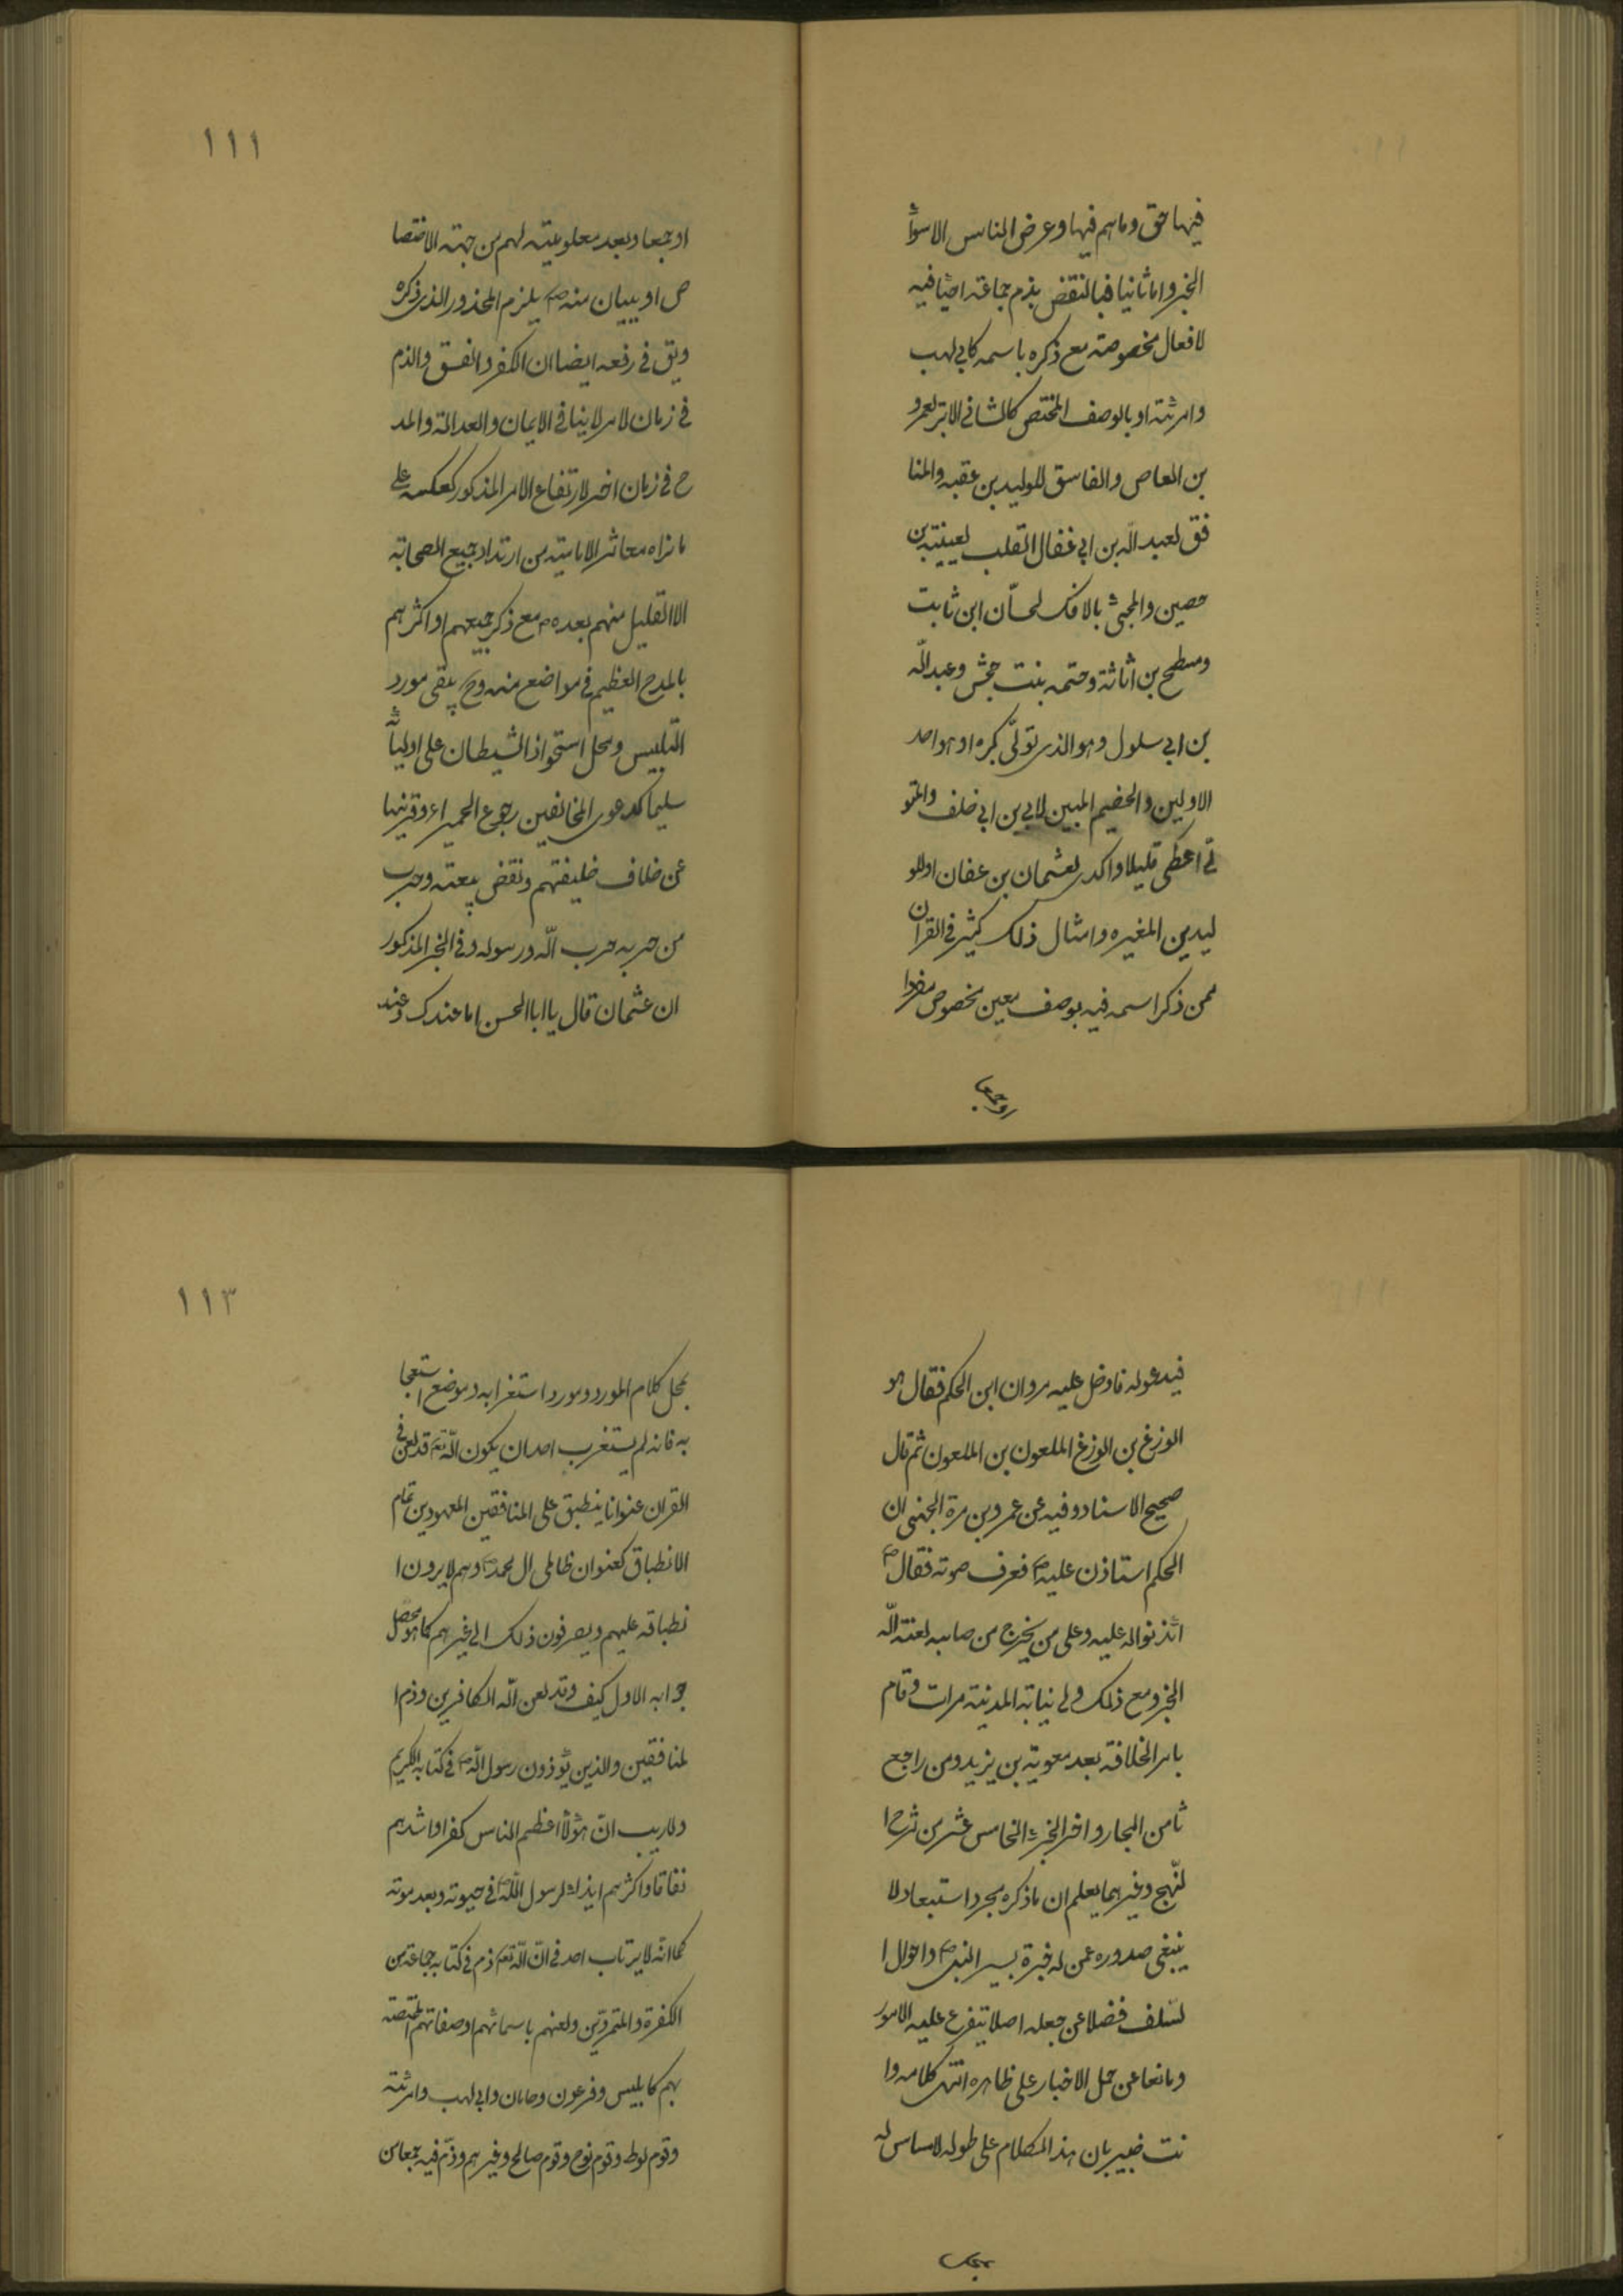 فيها حق وما هم فيها وعرض الناس الاسوأ
الخبر واما ثانيا فبالنقض بذم جماعة احيا فيه
لافعال مخصوصة مع ذكره باسمه كابي لهب
وامرئته او بالوصف المختص كالشانئ الابتر لعمرو
بن العاص والفاسق للوليد بن عقبه والمنا
فق لعبد الله بن ابي غفال القلب لعيينة بن
حصين والمجئ بالافك لحسّان ابن ثابت
ومسطح بن اثاثة وحتمه بنت جحش وعبد الله
بن ابي سلول وهو الذي تولّى كبره او هو احد
الاولين والخصيم المبين لابي بن ابي خلف والمتو
لّى اعطى قليلا واكدى لعثمان بن عفان او للو
ليد بن المغيره وامثال ذلك كثير في القران
ممن ذكر اسمه فيه بوصف معين مخصوص مفردا
او جمعا
١١١
او جمعا وبعد معلوميته لهم من جهة الاختصا
ص او ببيان منه ص يلزم المحذور الذي ذكره
ويق في رفعه ايضا ان الكفر والفسق والذم
في زمان لامر لا ينافي الايمان والعدالة والمد
ح في زمان اخر لارتفاع الامر المذكور كعكسه على
ما نراه معاشر الامامية من ارتداد جميع الصحابة
الا القليل منهم بعده ص مع ذكر جميعهم او اكثرهم
بالمدح العظيم في مواضع منه وح يبقى مورد
التلبيس ومحل استحواذ الشيطان على اوليائه
سليما كدعوى المخالفين رجوع الحميراء وقرينها
عن خلاف خليفتهم ونقض بيعته وحرب
من حربه حرب الله ورسوله وفي الخبر المذكور
ان عثمان قال يا ابا الحسن اما عندك وعند
فيدعو له فادخل عليه مروان ابن الحكم فقال هو
الوزغ بن الوزغ الملعون بن الملعون ثم قال
صحيح الاسناد وفيه عن عمرو بن مرة الجهني ان
الحكم استاذن عليه ص فعرف صوته فقال ص
ائذنوا له عليه وعلى من يخرج من صلبه لعنة الله
الخبر ومع ذلك ولي نيابة المدينة مرات وقام
بامر الخلافة بعد معوية بن يزيد ومن راجع
ثامن البحار واخر الجزء الخامس عشر من شرح ا
لنّهج وغيرهما يعلم ان ما ذكره مجرد استبعاد لا
ينبغي صدوره عمن له خبرة بسير النبي ص واحوال ا
لسّلف فضلا عن جعله اصلا يتفرع عليه الامور
ومانعا عن حمل الاخبار على ظاهره انتهى كلامه وا
نت خبير بان هذا الكلام على طوله لا مساس له
بمحل
١١٣
بمحل كلام المورد ومورد استغرابه وموضع استعجا
به فانه لم يستغرب احد ان يكون الله تعه قد لعن في
القران عنوانا ينطبق على المنافقين المعهودين تمام
الانطباق كعنوان ظالمي ال محمد ص وهم لا يرون ا
نطباقه عليهم ويصرفون ذلك الى غيرهم كما هو محصل
جوابه الاول كيف وقد لعن الله الكافرين وذم ا
لمنافقين والذين يؤذون رسول الله ص في كتابه الكريم
ولا ريب انّ هؤلاء اعظم الناس كفرا واشدهم
نفاقا واكثرهم ايذاء لرسول الله ص في حيوته وبعد موته
كما انّه لا يرتاب احد في انّ الله تعه ذم في كتابه جماعة من
الكفرة والمتمردين ولعنهم باسمائهم او صفاتهم المختصة
بهم كابليس وفرعون وهامان وابي لهب وامرئته
وقوم لوط وقوم نوح وقوم صالح وغيرهم وذم فيه جمعا من